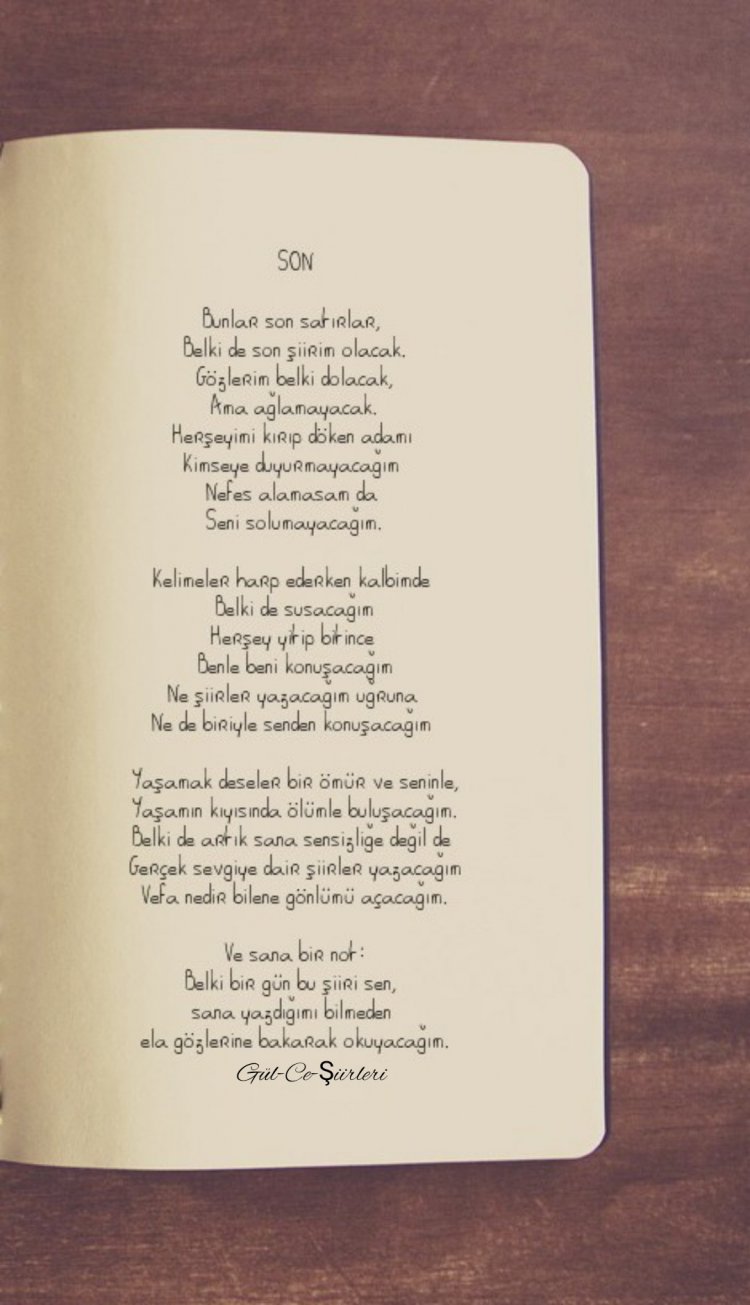 SON
Bunlar son satırlar,
Belki de son şiirim olacak.
Gözlerim belki dolacak,
Ama ağlamayacak.
Herşeyimi kırıp döken adamı
Kimseye duyurmayacağım
Nefes alamasam da
Seni solumayacağım.
Kelimeler harp ederken kalbimde
Belki de susacağım
Herşey yitip bitince
Benle beni konuşacağım
Ne şiirler yazacağım uğruna
Ne de biriyle senden konuşacağım
Yaşamak deseler bir ömür ve seninle,
Yaşamın kıyısında ölümle buluşacağım.
Belki de artık sana sensizliğe değil de
Gerçek sevgiye dair şiirler yazacağım
Vefa nedir bilene gönlümü açacağım.
Ve sana bir not:
Belki bir gün bu şiiri sen,
sana yazdığımı bilmeden
ela gözlerine bakarak okuyacağım.
Gül-Ce-Şiirleri